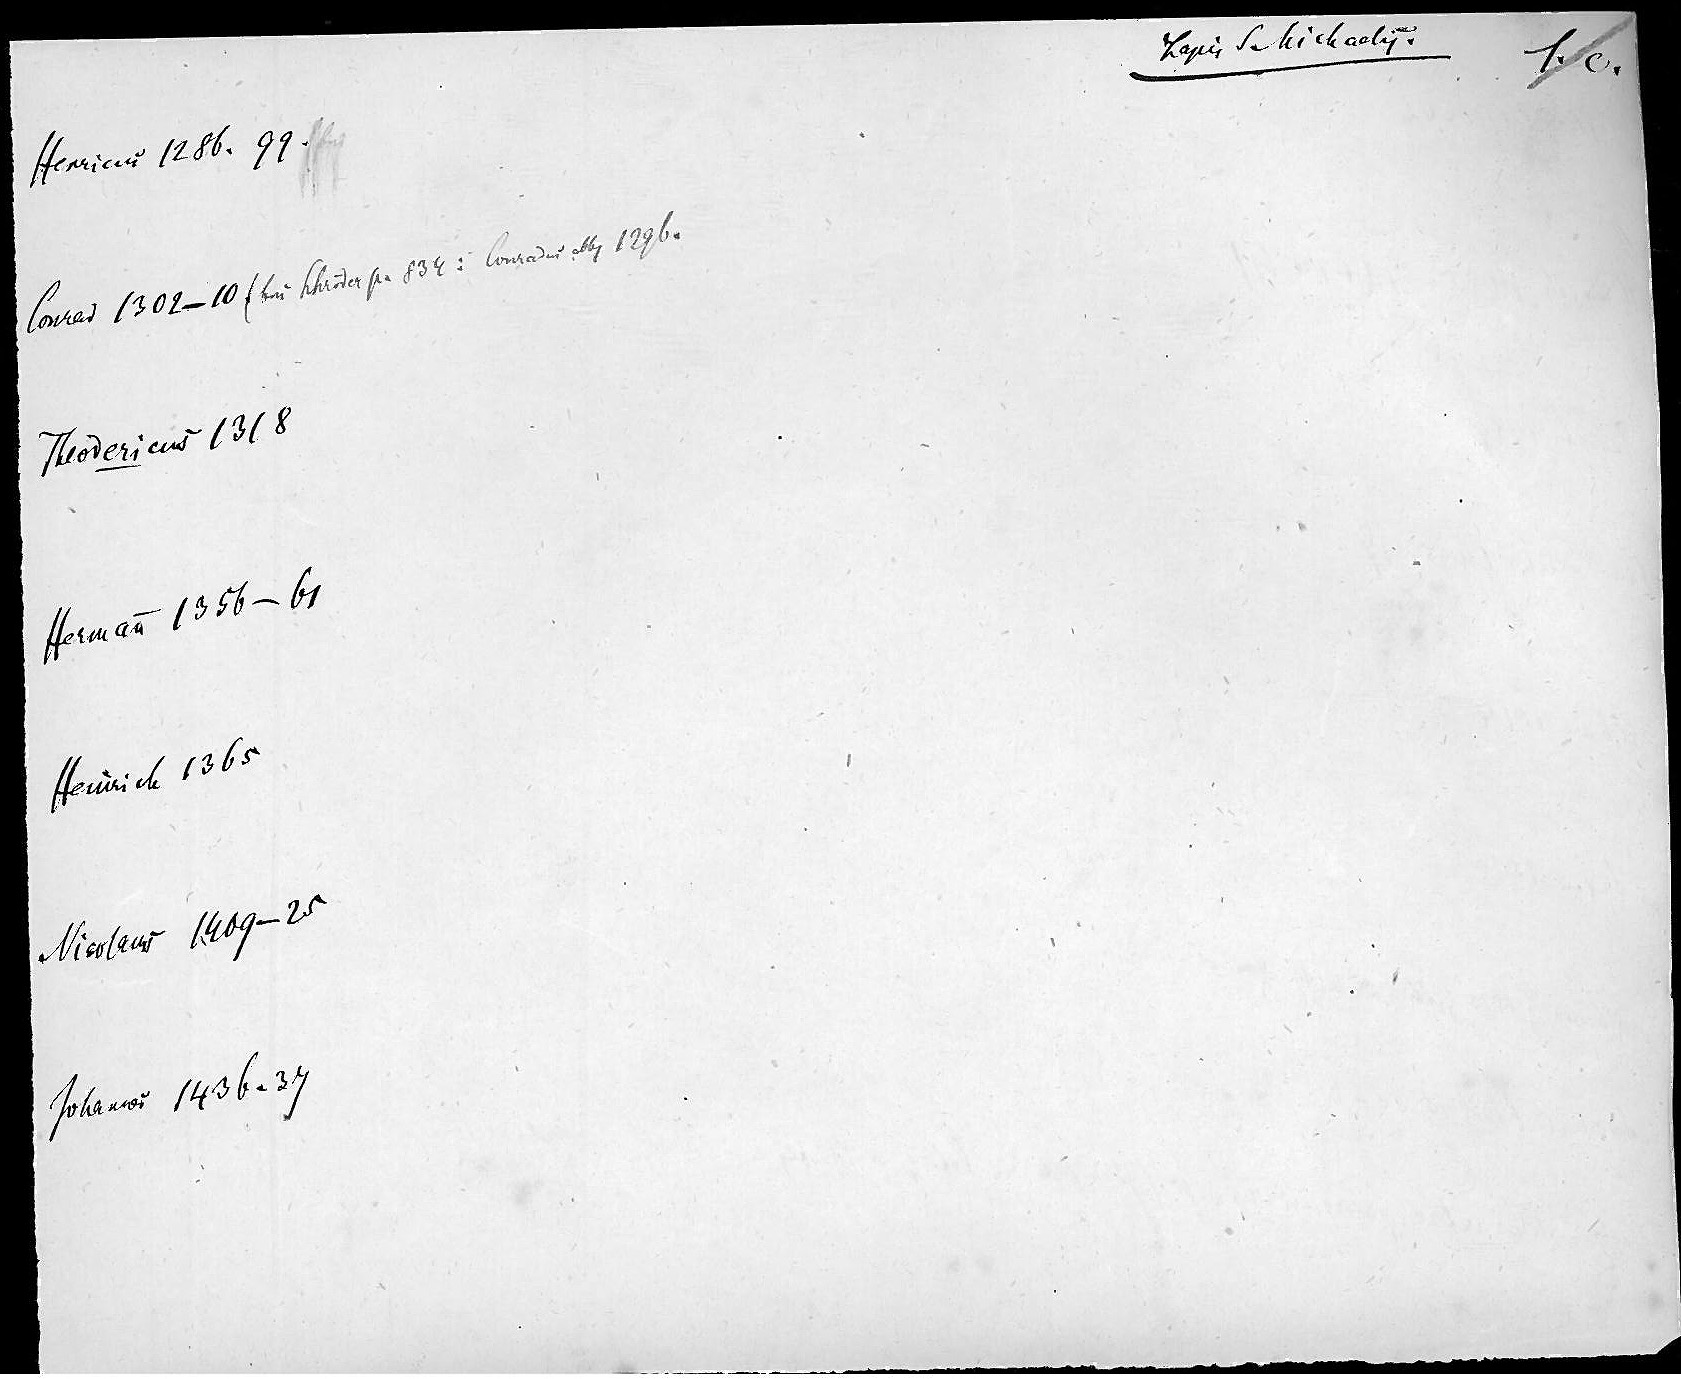 Lapis S. Michaelis.
f. c.
Henricus 1286. 99.
Conrad 1302–10 (bei Schröder p. 834: Conradus abbj 1296.
Theodericus 1318
Herman̄ 1356–61
Heinrich 1365
Nicolaus 1409–25
Johannes 1436.37